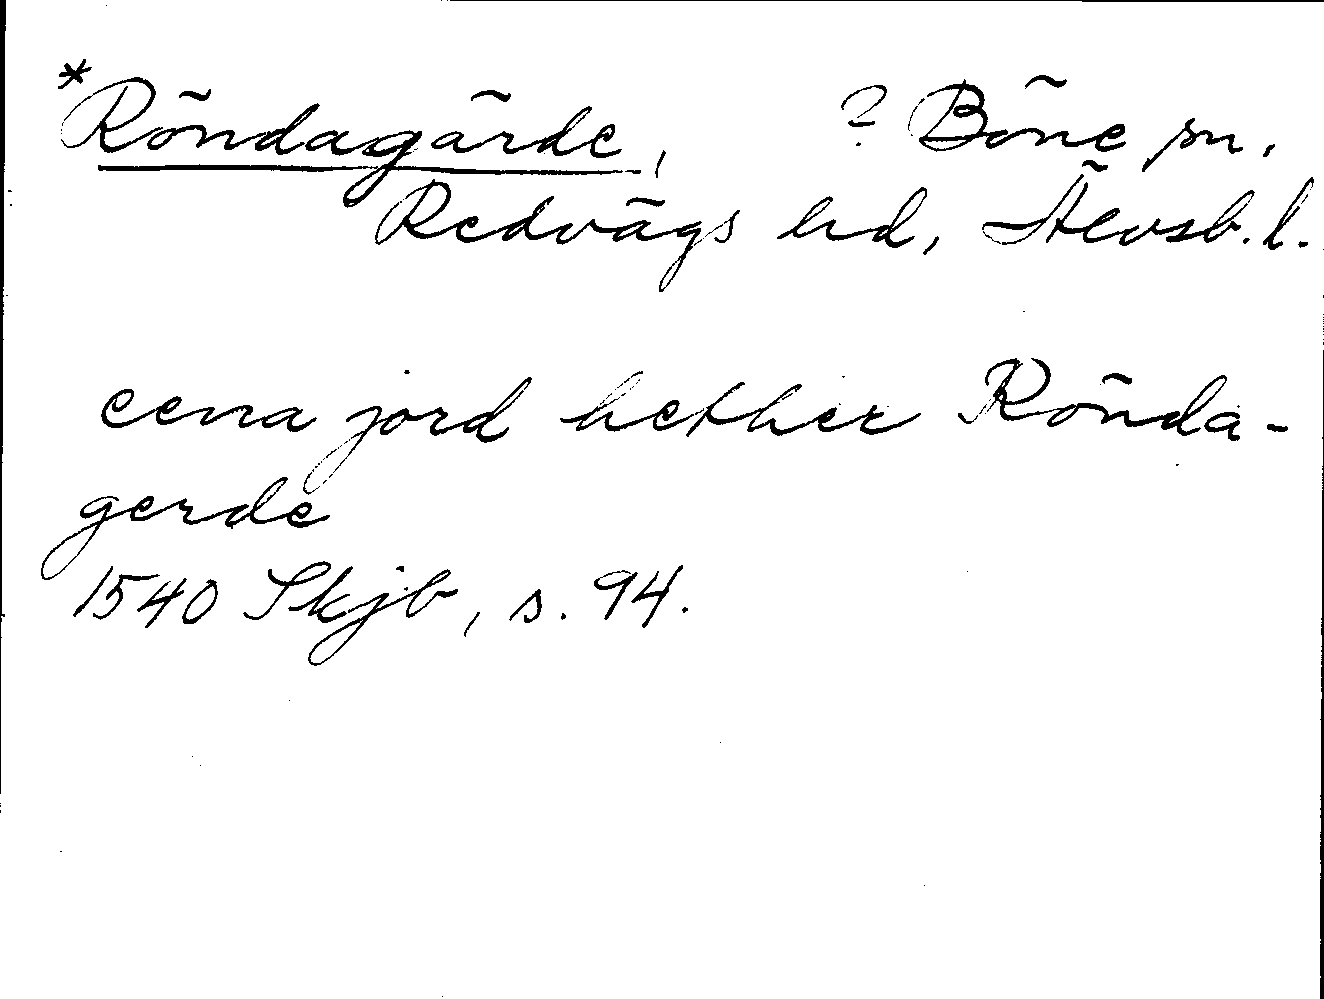 *Röndagärde, ? Böne sn.
Redvägs hd, Älvsb. l.
eena jord hether Rönda-
gerde
1540 Skjb, s. 94.